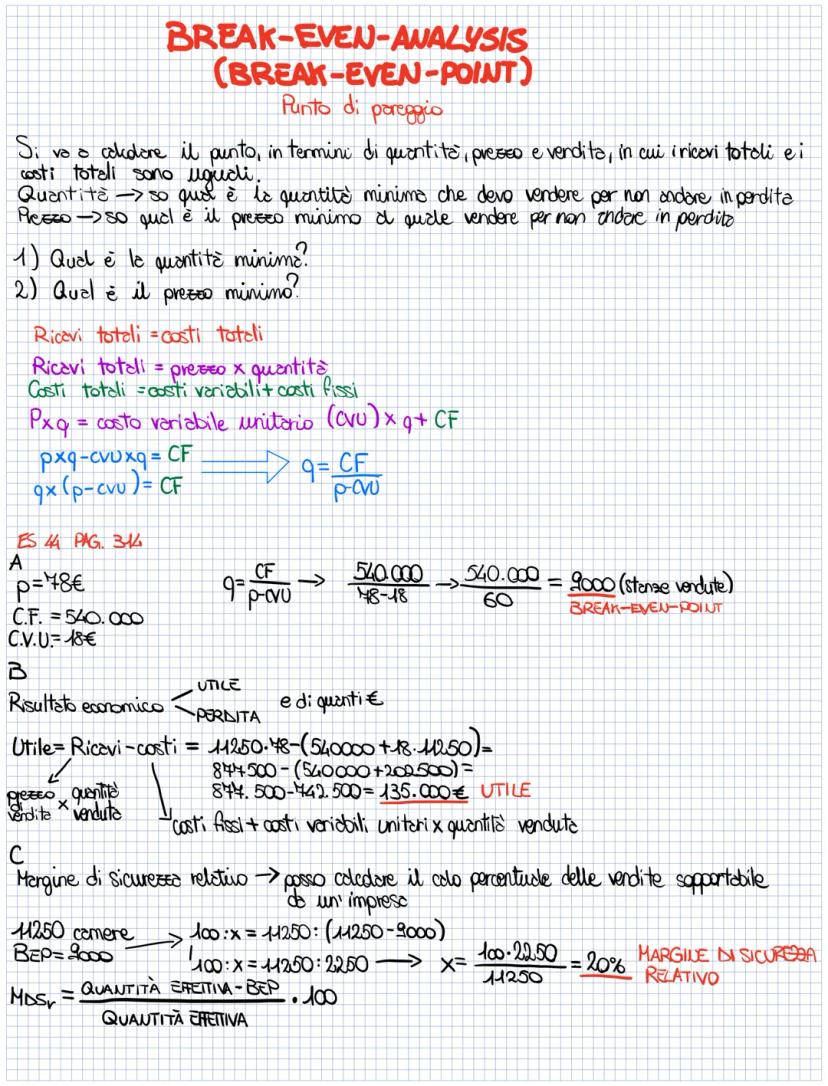 BREAK-EVEN-ANALYSIS
(BREAK-EVEN-POINT)
Punto di pareggio
Si va a calcolare il punto, in termini di quantità, prezzo e vendita, in cui i ricavi totali e i
costi totali sono uguali.
Quantità → so qual è la quantità minima che devo vendere per non andare in perdita
Prezzo → so qual è il prezzo minimo al quale vendere per non andare in perdita
1) Qual è la quantità minima?
2) Qual è il prezzo minimo?
Ricavi totali = costi totali
Ricavi totali = prezzo x quantità
Costi totali = costi variabili + costi fissi
Pxq = costo variabile unitario (CVU) x q + CF
pxq-cvuxq = CF
qx(p-cvu) = CF
q = CF / p-CVU
ES 44 PAG. 314
A
p=78€
C.F. = 540.000
C.V.U.= 18€
q = CF / p-CVU → 540.000 / 78-18 → 540.000 / 60 = 9000 (stanze vendute)
BREAK-EVEN-POINT
B
Risultato economico
UTILE
PERDITA
e di quanti €
Utile = Ricavi-costi = 11250·78-(540000+18·11250)=
877500-(540000+202500)=
877.500-742.500= 135.000€ UTILE
prezzo di vendita x quantità venduta
costi fissi + costi variabili unitari x quantità venduta
C
Margine di sicurezza relativo → posso calcolare il calo percentuale delle vendite sopportabile
da un'impresa
11250 camere
BEP= 9000
100:x = 11250:(11250-9000)
100:x = 11250:2250 → x = 100·2250 / 11250 = 20% MARGINE DI SICUREZZA
RELATIVO
MDSr = QUANTITÀ EFFETTIVA-BEP / QUANTITÀ EFFETTIVA · 100